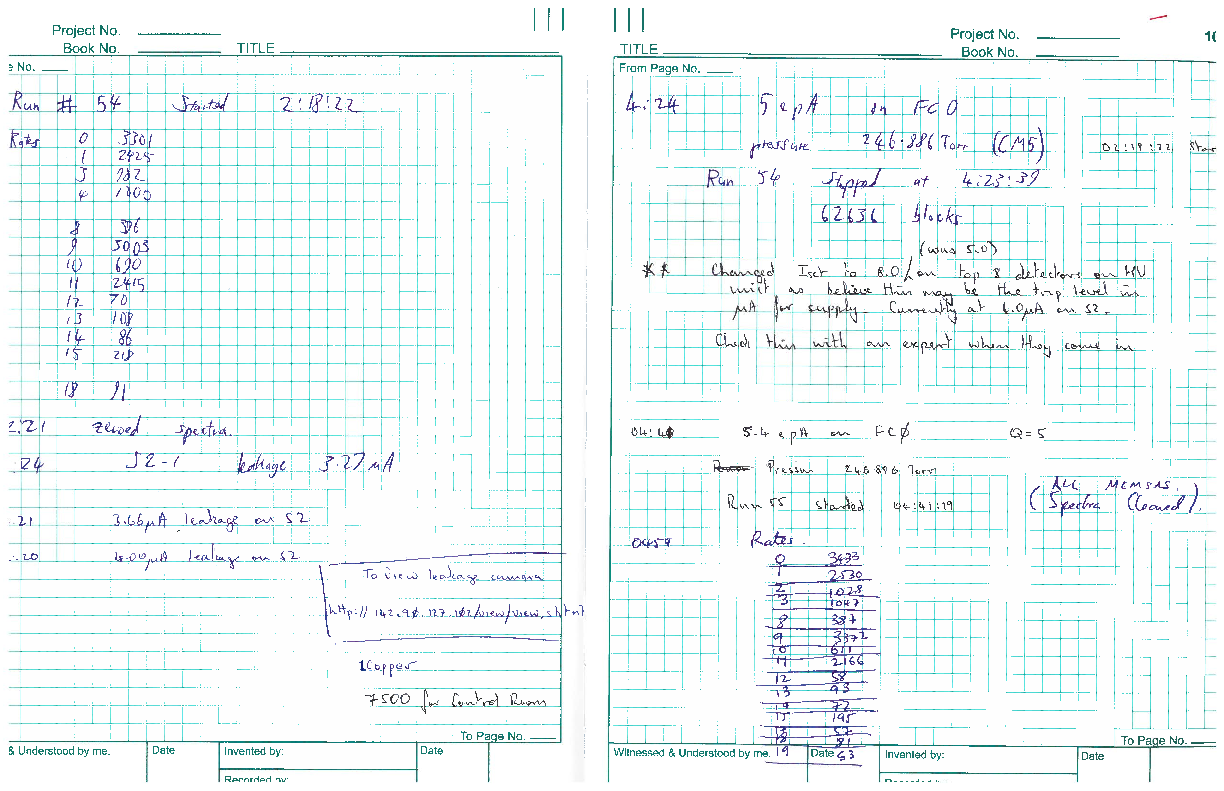 Project No.
Book No.
TITLE
e No.
Run # 54 Started 2:18:22
Rates 0 3301
1 2425
3 982
4 1400
8 596
9 3003
10 690
11 2415
12 70
13 108
14 86
15 218
18 91
2:21 zeroed spectra.
.24 S2-1 leakage 3.27 µA
.21 3.66µA leakage on S2
:20 4.00µA leakage on S2
To view leakage camera
http://142.90.127.102/view/view.shtml
1Copper
7500 for Control Room
To Page No.
& Understood by me.
Date
Invented by:
Date
Recorded by:
Project No.
Book No.
TITLE
10
From Page No.
4:24 5 epA on FC0
pressure 246.886 Torr (CM5)
02:18:22 Star
Run 54 Stopped at 4:23:39
62636 blocks
(was 5.0)
** Changed Iset to 8.0 on top 8 detectors on HV
unit as believe this may be the trip level in
µA for supply. Currently at 4.0µA on S2.
Check this with an expert when they come in
04:40 5.4 epA on FCØ Q=5
Pressure 246.896 Torr
Run 55 started 04:41:19
(ALL MEMSAS.
Spectra Cleared).
0459 Rates.
0 3433
1 2530
2 1028
3 1047
8 387
9 3372
10 671
11 2166
12 58
13 93
14 72
15 195
18 81
19 63
Witnessed & Understood by me.
Date
Invented by:
Date
To Page No.